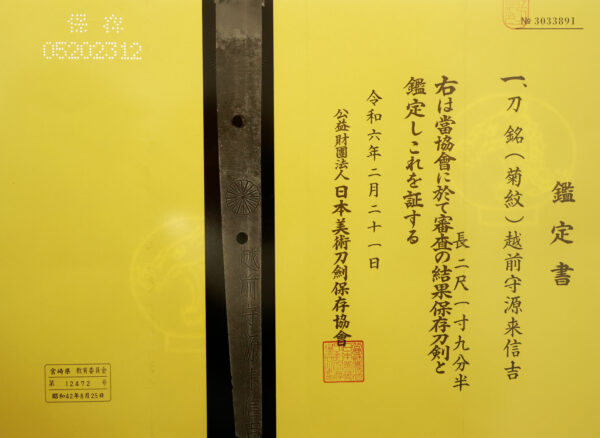 № 3033891
鑑定書
一、刀 銘(菊紋)越前守源来信吉
長二尺一寸九分半
右は當協會に於て審査の結果保存刀剣と
鑑定しこれを証する
令和六年二月二十一日
公益財團法人日本美術刀劍保存協會
保存
05202312
越前守源来信吉
宮崎県 教育委員会
第 12472 号
昭和42年8月25日